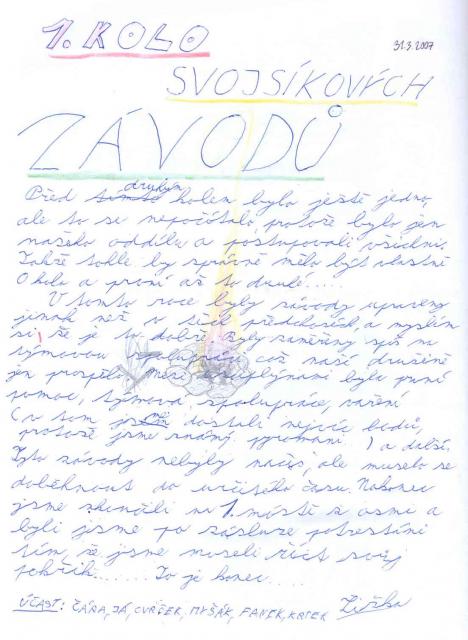 1. KOLO
31.3.2007
SVOJSÍKOVÝCH
ZÁVODŮ
Před druhým kolem bylo ještě jedno,
ale to se nepočítalo, protože bylo jen
našeho oddílu a postupovali všichni.
Takže tohle by správně mělo být vlastně
0 kolo a první až to druhé.....
V tomto roce byly závody upraveny
jinak než v těch předchozích, a myslím
si, že je to dobře. Byly zaměřeny spíš na
týmovou spolupráci, což naší družině
jen prospělo. Mezi disciplýnami byla první
pomoc, týmová spolupráce, vaření
(v tom jsme dostali nejvíc bodů,
protože jsme známý pyromani) a další.
Tyto závody nebyly na čas, ale muselo se
doběhnout do určitého času. Nakonec
jsme skončili na 1. místě z osmi a
byli jsme po zásluze potrestáni
tím, že jsme museli říct svůj
pokřik....... To je konec.....
ÚČAST: ČÁRA, JÁ, CVÁČEK, MYŠÁK, FANEK, KAREK